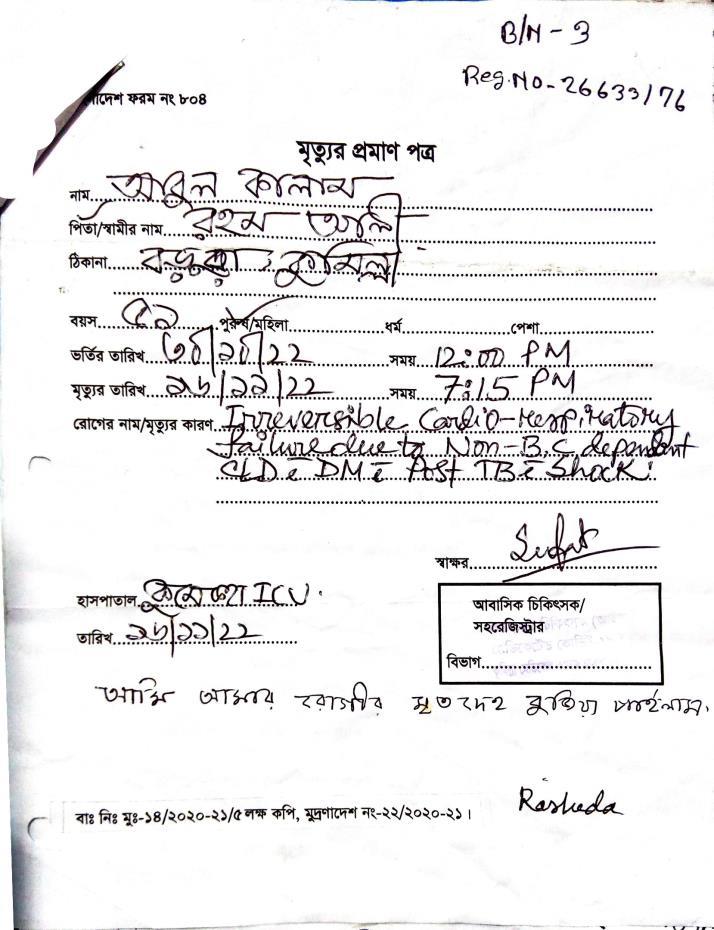 B/N - 3
Reg. No - 26633/76
াদেশ ফরম নং ৮০৪
মৃত্যুর প্রমাণ পত্র
নাম আবুল কালাম
পিতা/স্বামীর নাম রহম আলী
ঠিকানা বড়ুরা, কুমিল্লা
বয়স ৫২ পুরুষ/মহিলা ধর্ম পেশা
ভর্তির তারিখ সময় 12:00 PM
মৃত্যুর তারিখ ২৬/১১/22 সময় 7:15 PM
রোগের নাম/মৃত্যুর কারণ Irreversible Cardio-Respiratory
failure due to Non-B, C dependent
CLD c̄ DM c̄ Post TB c̄ Shock.
স্বাক্ষর
হাসপাতাল কুমেকহা ICU.
আবাসিক চিকিৎসক/
সহরেজিস্ট্রার
তারিখ ২৬/১১/22
বিভাগ
আমি আমার রোগীর মৃতদেহ বুঝিয়া পাইলাম।
Rasheda
বাঃ নিঃ মুঃ-১৪/২০২০-২১/৫ লক্ষ কপি, মুদ্রণাদেশ নং-২২/২০২০-২১।